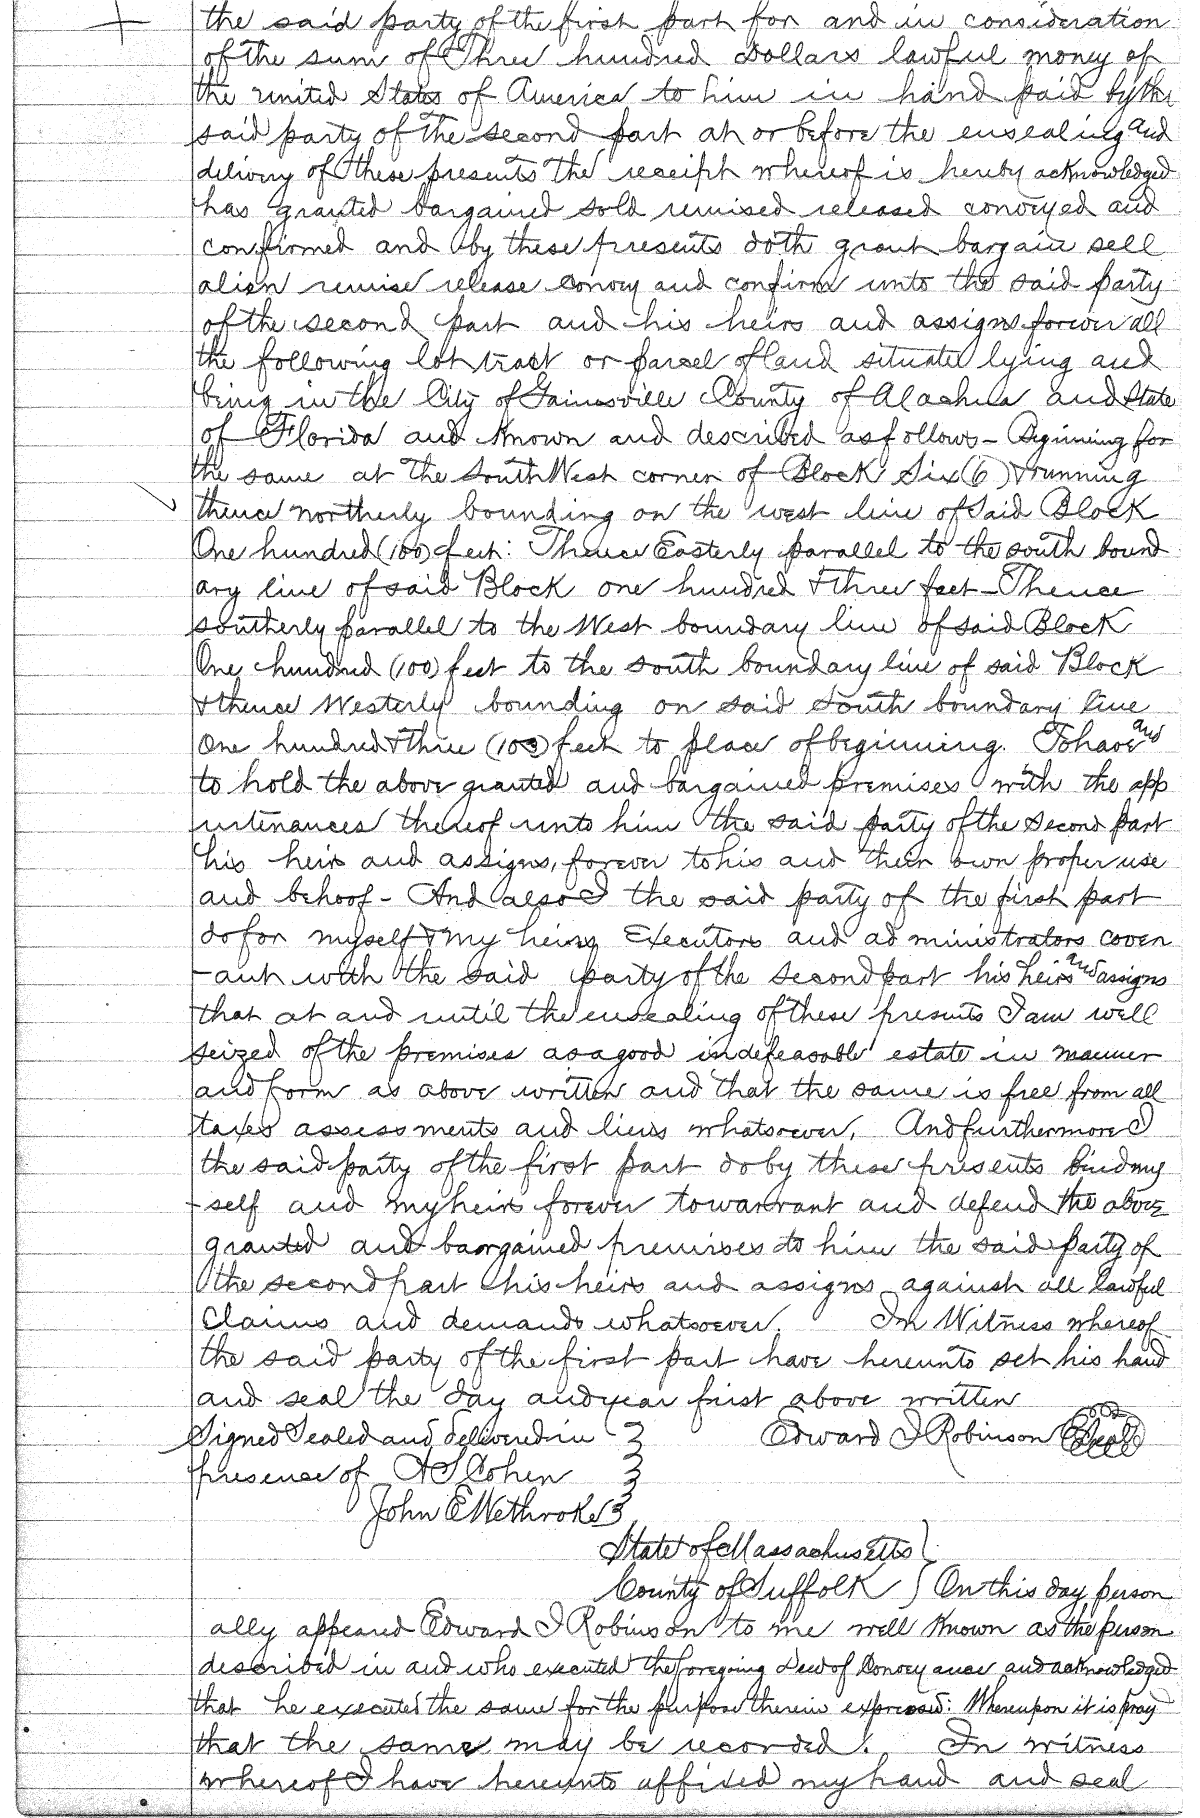 the said party of the first part for and in consideration
of the sum of Three hundred Dollars lawful money of
the united States of America to him in hand paid by the
said party of the second part at or before the ensealing and
delivery of these presents the receipt whereof is hereby acknowledged
has granted bargained sold remised released conveyed and
confirmed and by these presents doth grant bargain sell
alien remise release convey and confirm unto the said party
of the second part and his heirs and assigns forever all
the following lot tract or parcel of land situate lying and
being in the City of Gainsville County of Alachua and State
of Florida and known and described as follows – Beginning for
the same at the South West corner of Block Six (6) & running
thence northerly bounding on the west line of said Block
One hundred (100) feet: Thence Easterly parallel to the south bound
ary line of said Block one hundred & three feet – Thence
southerly parallel to the West boundary line of said Block
One hundred (100) feet to the south boundary line of said Block
& thence Westerly bounding on said South boundary line
One hundred & three (103) feet to place of beginning. To have and
to hold the above granted and bargained premises with the app
urtenances thereof unto him the said party of the second part
his heirs and assigns, forever to his and their own proper use
and behoof – And also I the said party of the first part
do for myself & my heirs Executors and administrators coven
-ant with the said party of the second part his heirs and assigns
that at and until the ensealing of these presents I am well
seized of the premises as a good indefeasable estate in manner
and form as above written and that the same is free from all
taxes assessments and liens whatsoever. And furthermore I
the said party of the first part do by these presents bind my
-self and my heirs forever to warrant and defend the above
granted and baorgained premises to him the said party of
the second part his heirs and assigns against all lawful
Claims and demands whatsoever. In Witness whereof
the said party of the first part have hereunto set his hand
and seal the day and year first above written
Signed Sealed and delivered in Edward I Robinson Seal
presence of A S Cohen
John E Wethroke
State of Massachusetts }
County of Suffolk } On this day person
ally appeared Edward I Robinson to me well known as the person
described in and who executed the foregoing Deed of Conveyance and acknowledged
that he executed the same for the purpose therein expressed: Whereupon it is pray
that the same may be recorded. In witness
whereof I have hereunto affixed my hand and seal